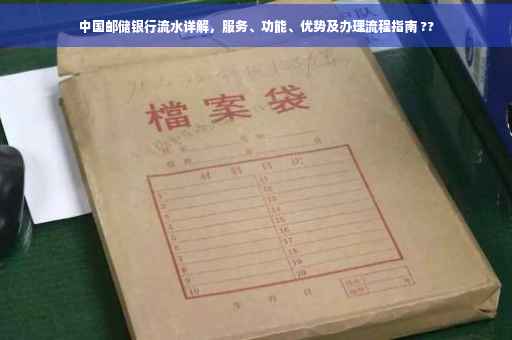 中国邮储银行流水详解，服务、功能、优势及办理流程指南 ??
檔案袋
材料目次
1 11
2 12
3 13
4 14
5 15
6 16
7 17
8 18
9 19
10 20
年 月 日